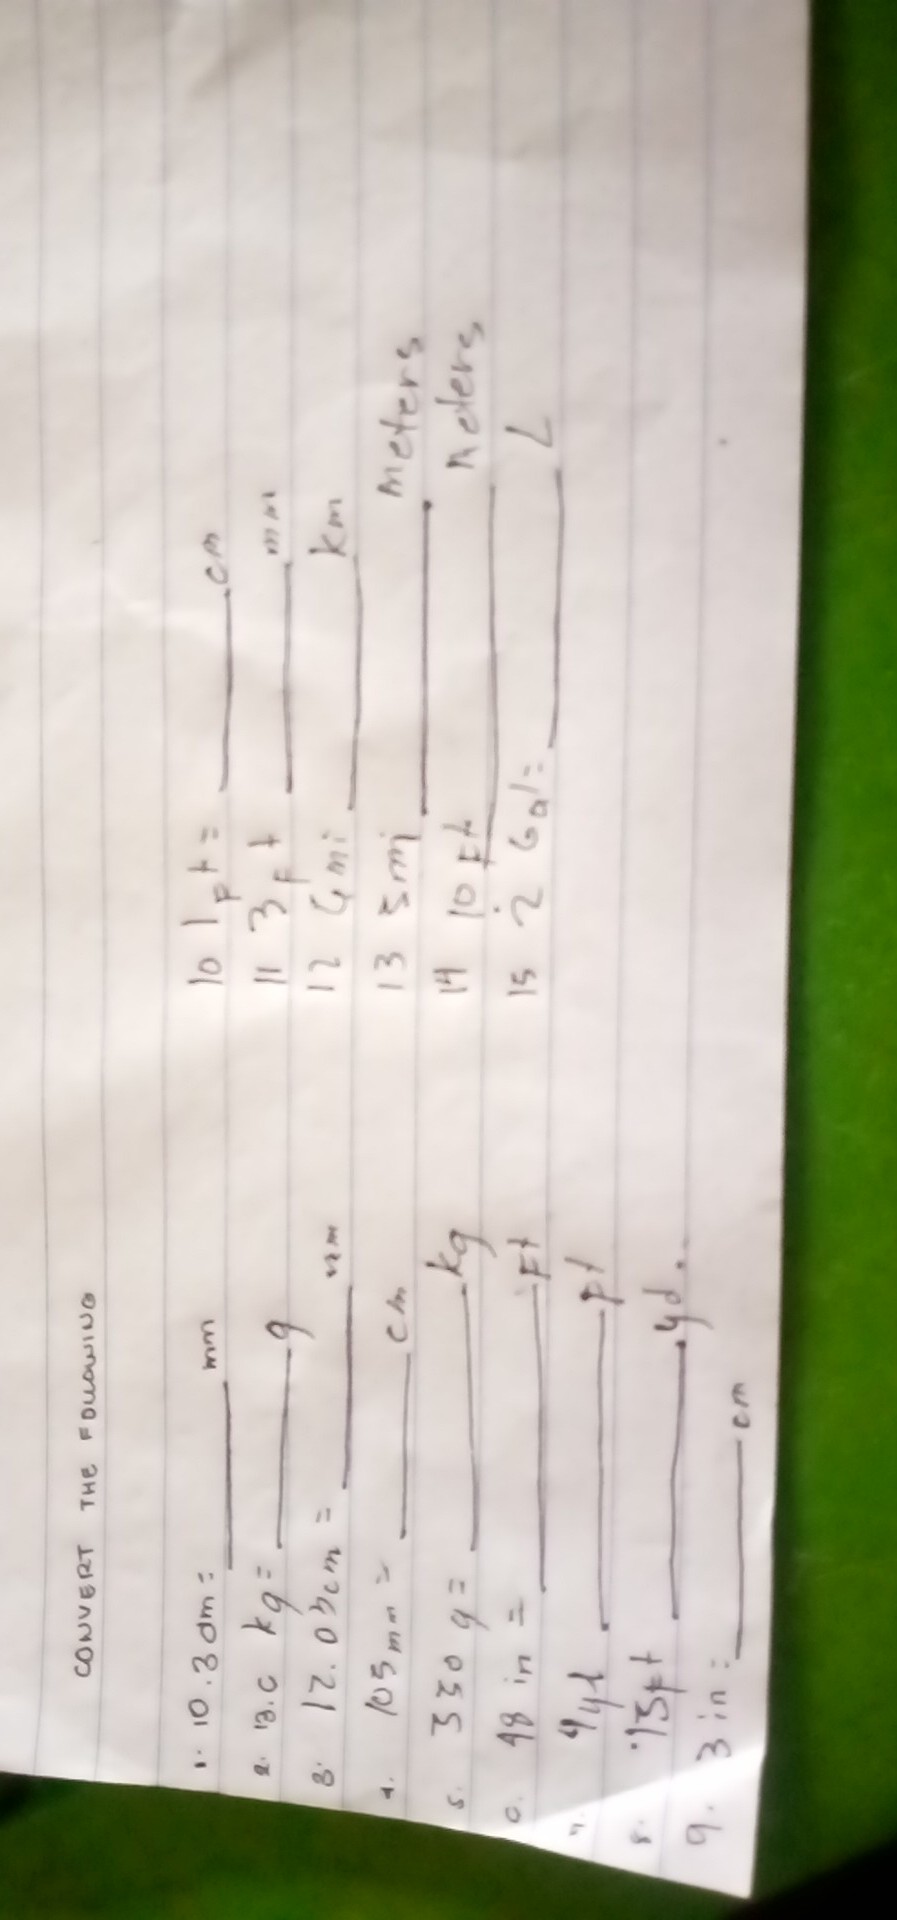 CONVERT THE FOLLOWING
1. 10.3 dm = mm
2. 13.0 kg = g
3. 12.03cm = mm
4. 105mm = cm
5. 330 g = kg
6. 48 in = Ft
7. 4yd ft
8. 15ft yd.
9. 3 in = cm
10 1ft = cm
11 3ft mm
12 4mi km
13 5mi meters
14 10 Ft meters
15 2 Gal = L